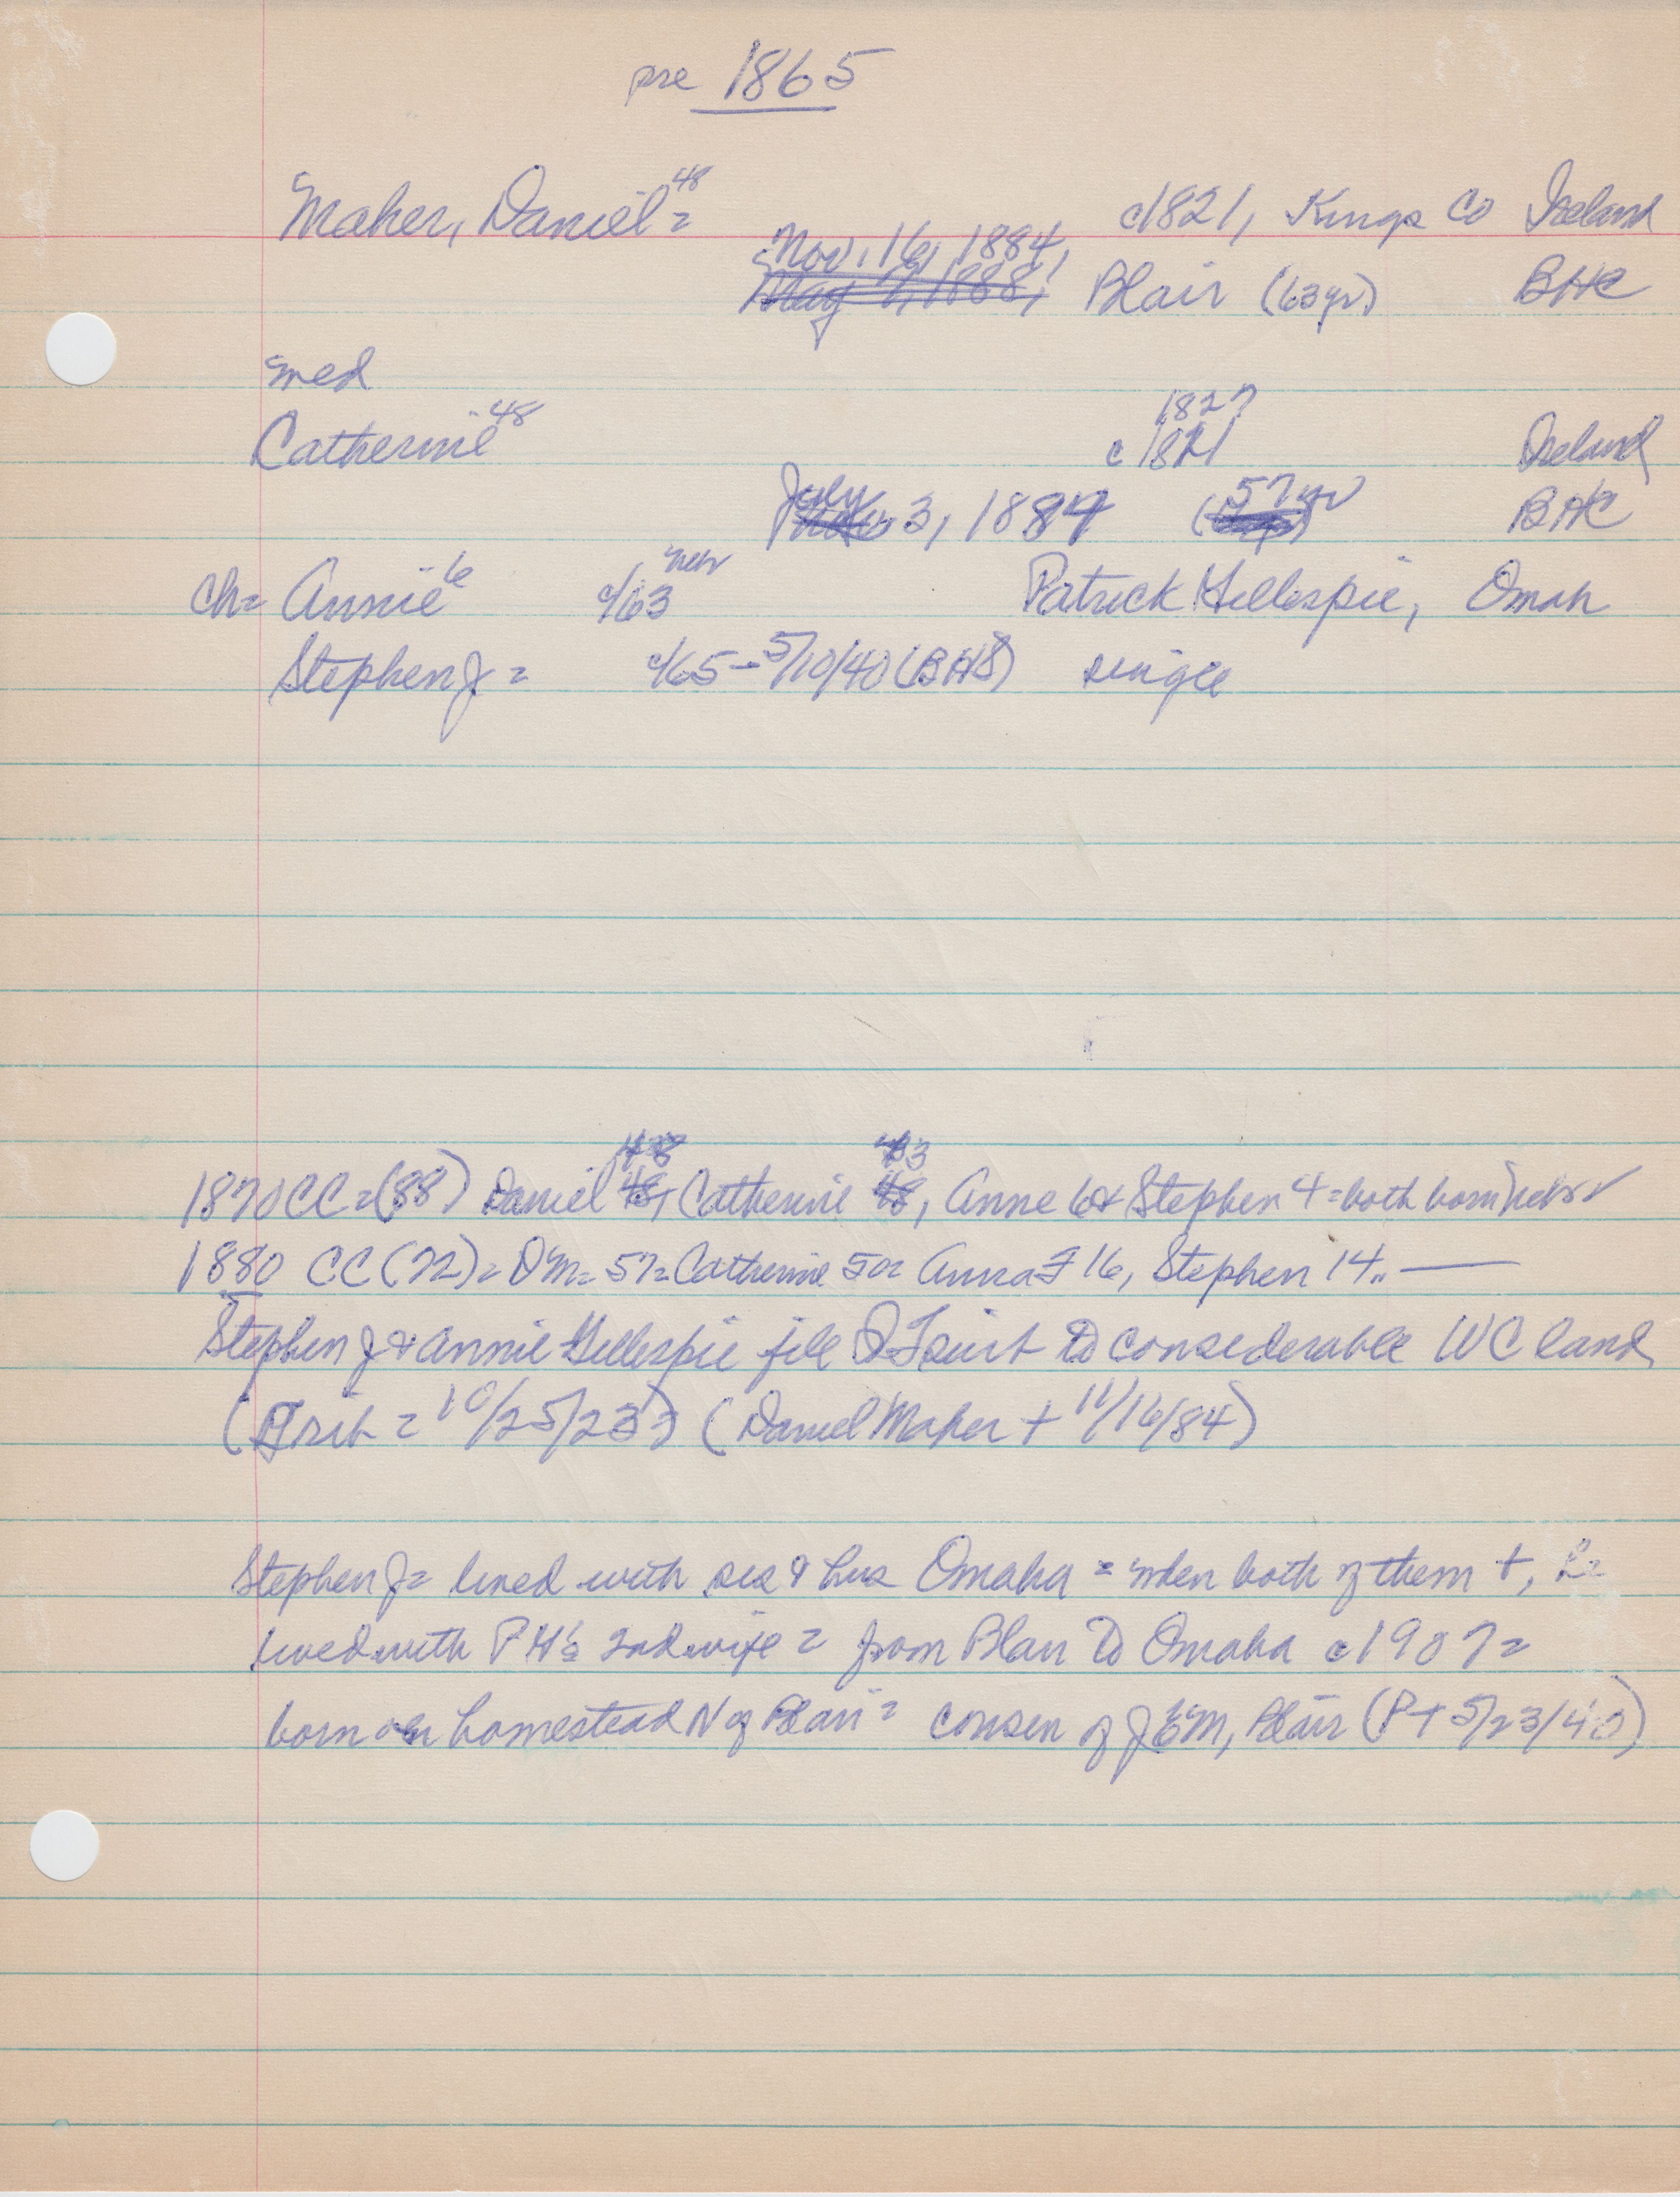 pre 1865
Maher, Daniel 48 = c1821, Kings Co Ireland
Nov. 16, 1884,
May 7, 1888, Blair (63yr) BHC
med
1827
Catherine 48 c1821 Ireland
July 3, 1884 (57 yr) BHC
ch= Annie 6 c/63 neb Patrick Gillespie, Omah
Stephen J = c/65 - 5/10/40 (BHS) single
43
1870 CC = (88) Daniel 48, Catherine 48, Anne 6 & Stephen 4 = both born nebr
1880 CC (72) = DM = 57 = Catherine 50 = Anna F 16, Stephen 14..
Stephen J & Annie Gillespie file Q T suit to considerable WC land
( = 10/25/23) (Daniel Maher + 11/16/84)
Stephen J = lived with sis & hus Omaha = when both of them +, he
lived with P H's 2nd wife = from Blair to Omaha c1907 =
born on homestead N of Blair = cousen of J E M, Blair (P + 5/23/40)